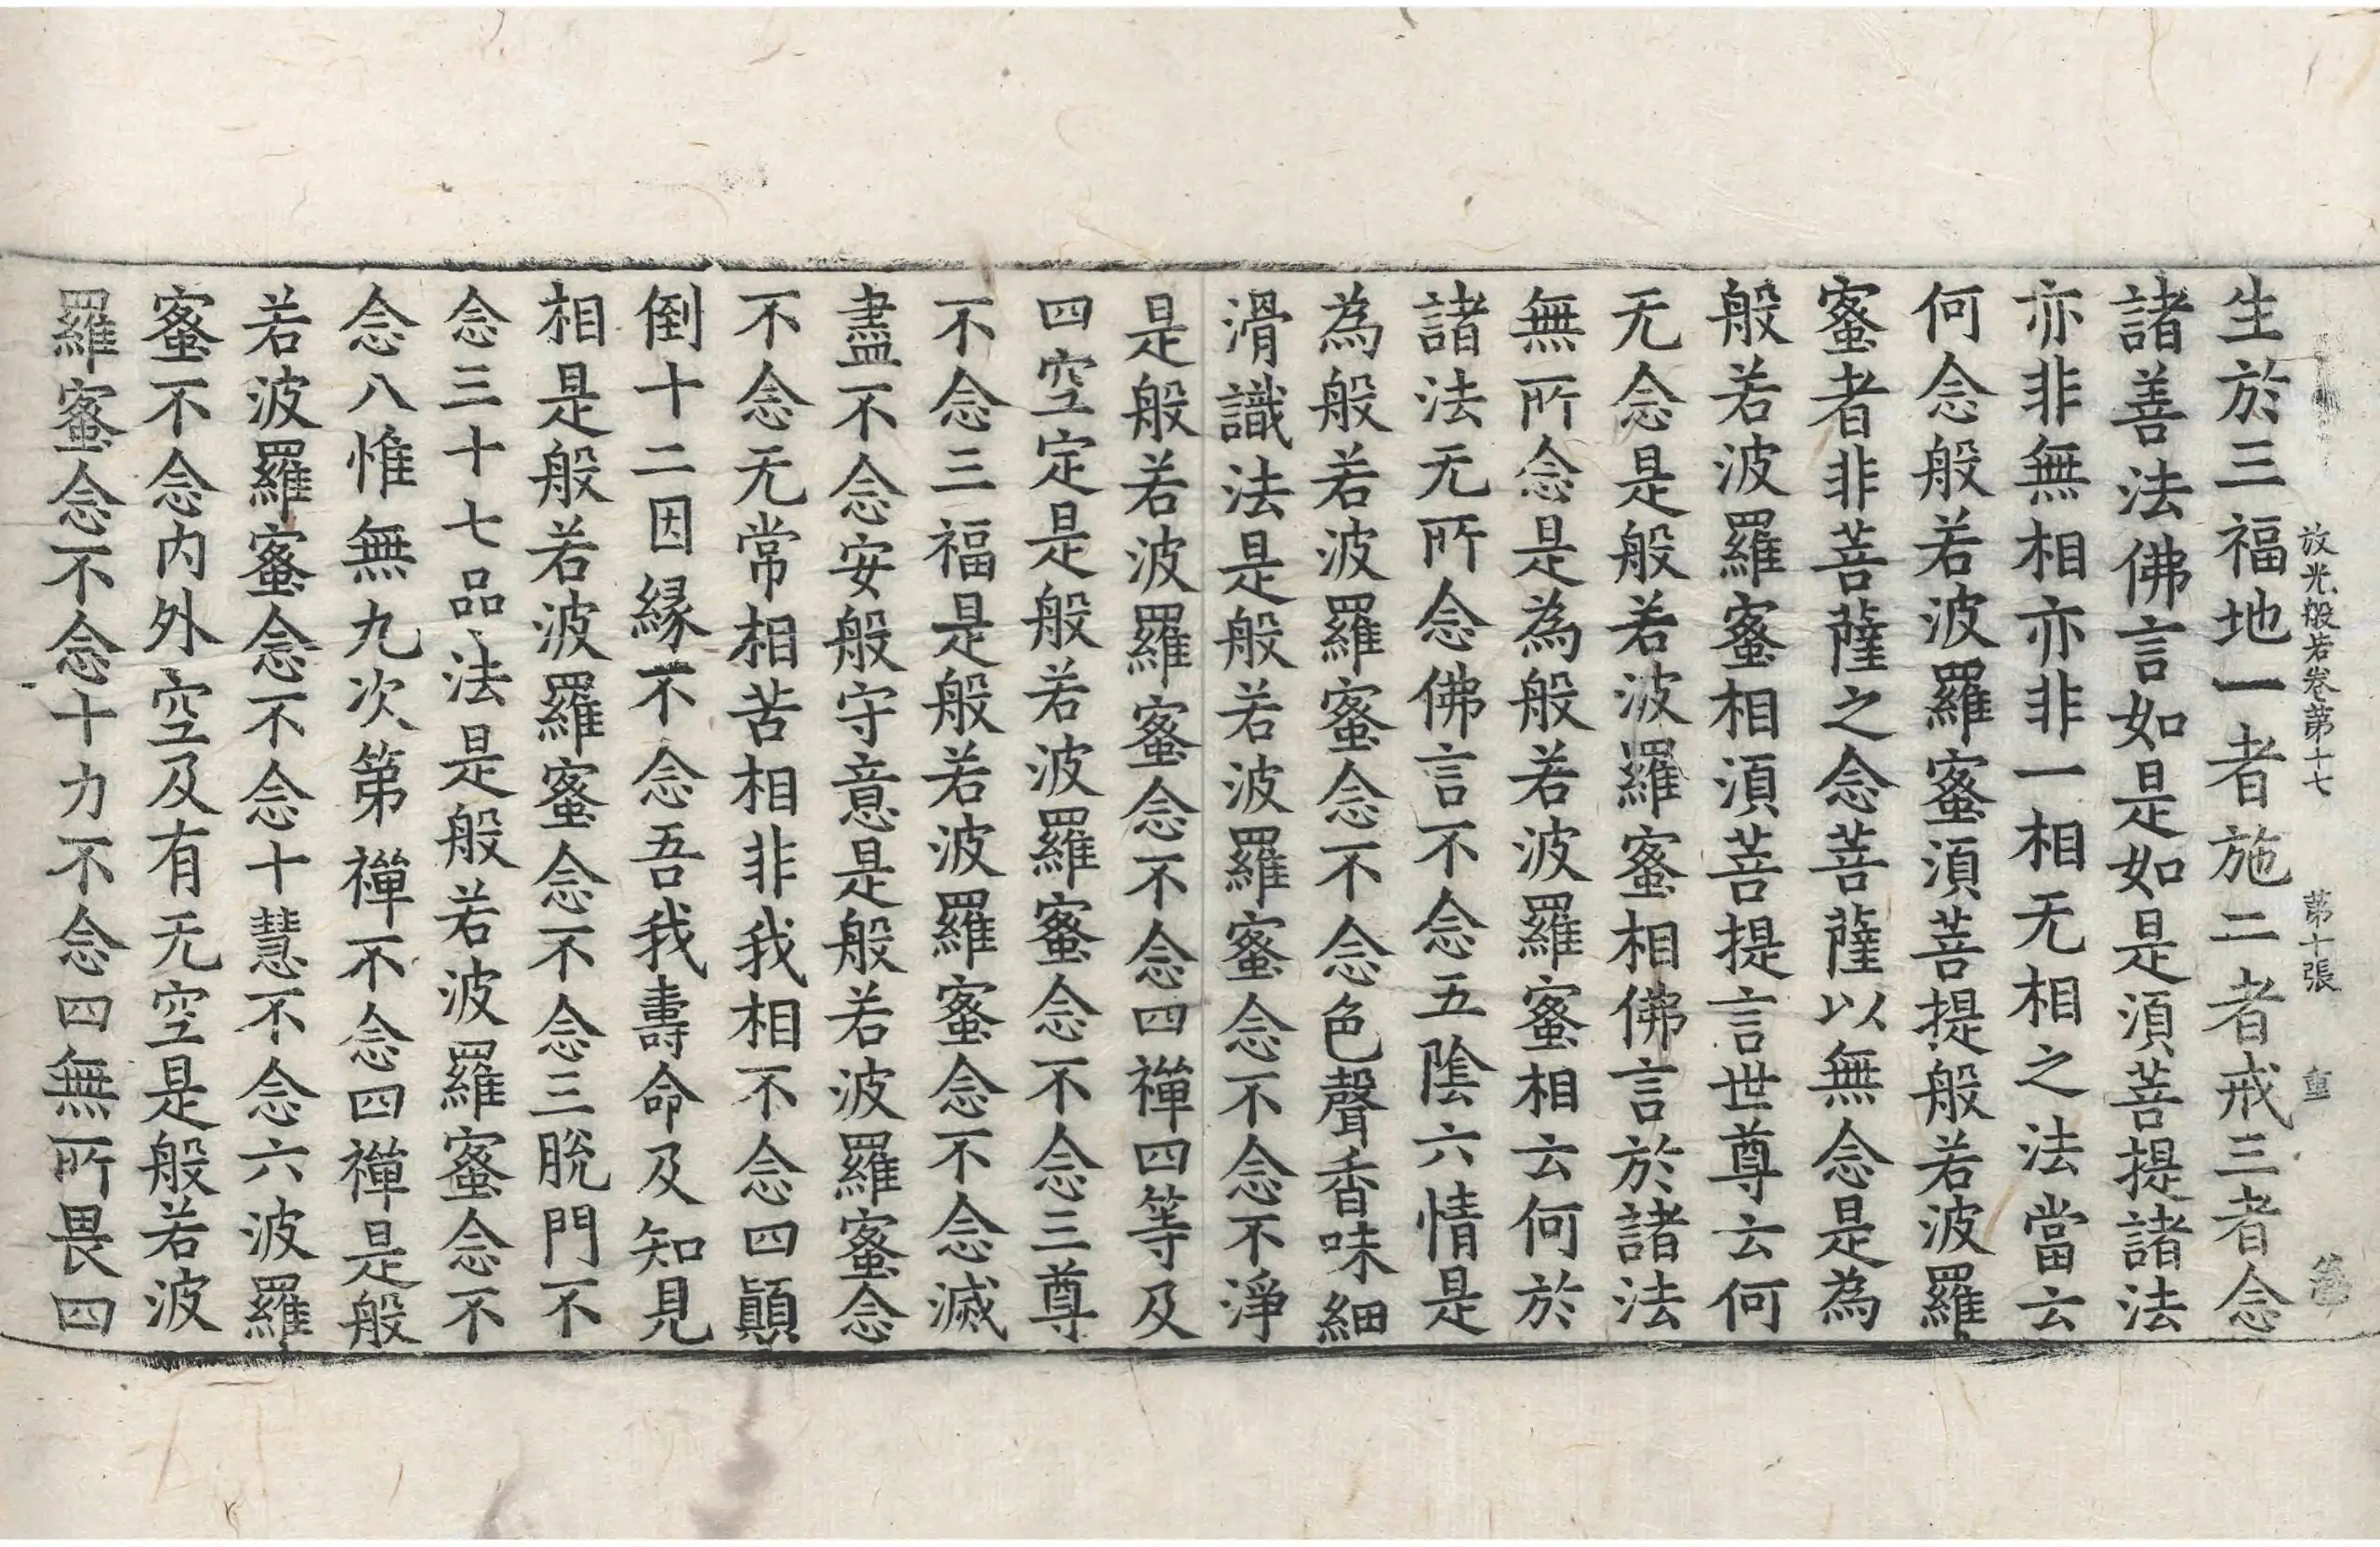 放光般若卷第十七　第十張　重
生於三福地一者施二者戒三者念
諸善法佛言如是如是須菩提諸法
亦非無相亦非一相无相之法當云
何念般若波羅蜜須菩提般若波羅
蜜者非菩薩之念菩薩以無念是為
般若波羅蜜相須菩提言世尊云何
无念是般若波羅蜜相佛言於諸法
無所念是為般若波羅蜜相云何於
諸法无所念佛言不念五陰六情是
為般若波羅蜜念不念色聲香味細
滑識法是般若波羅蜜念不念不淨
是般若波羅蜜念不念四禪四等及
四空定是般若波羅蜜念不念三尊
不念三福是般若波羅蜜念不念滅
盡不念安般守意是般若波羅蜜念
不念无常相苦相非我相不念四顛
倒十二因緣不念吾我壽命及知見
相是般若波羅蜜念不念三脫門不
念三十七品法是般若波羅蜜念不
念八惟無九次第禪不念四禪是般
若波羅蜜念不念十慧不念六波羅
蜜不念內外空及有无空是般若波
羅蜜念不念十力不念四無所畏四